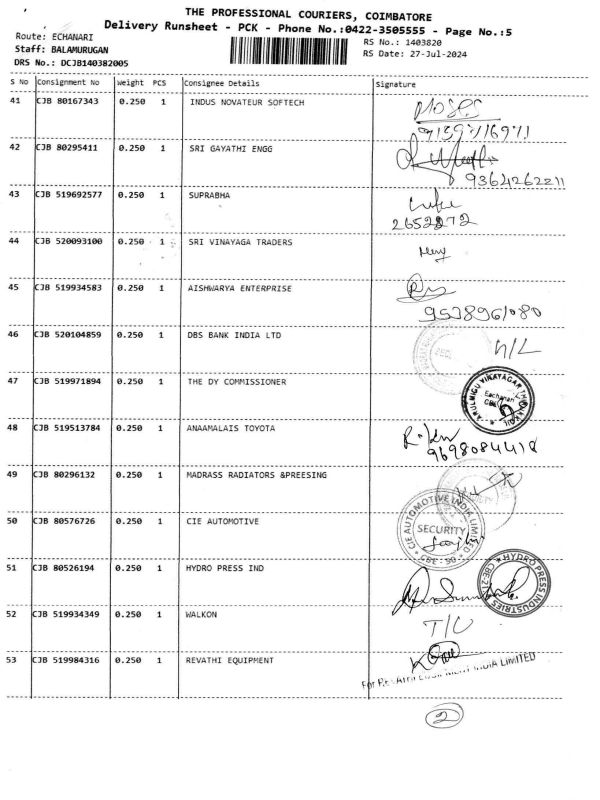 THE PROFESSIONAL COURIERS, COIMBATORE
Delivery Runsheet - PCK - Phone No.:0422-3505555 - Page No.:5
Route: ECHANARI
RS No.: 1403820
Staff: BALAMURUGAN
RS Date: 27-Jul-2024
DRS No.: DCJB140382005
S No Consignment No Weight PCS Consignee Details Signature
41 CJB 80167343 0.250 1 INDUS NOVATEUR SOFTECH MOSES
42 CJB 80295411 0.250 1 SRI GAYATHI ENGG
9364262211
43 CJB 519692577 0.250 1 SUPRABHA
2652272
44 CJB 520093100 0.250 1 SRI VINAYAGA TRADERS
45 CJB 519934583 0.250 1 AISHWARYA ENTERPRISE
9538961080
46 CJB 520104859 0.250 1 DBS BANK INDIA LTD N/L
47 CJB 519971894 0.250 1 THE DY COMMISSIONER
ARULMIGU VINAYAGAR
Eachanari
48 CJB 519513784 0.250 1 ANAAMALAIS TOYOTA
9698084418
49 CJB 80296132 0.250 1 MADRASS RADIATORS &PREESING
50 CJB 80576726 0.250 1 CIE AUTOMOTIVE
CIE AUTOMOTIVE INDIA LIMITED
SECURITY
51 CJB 80526194 0.250 1 HYDRO PRESS IND
HYDRO PRESS INDUSTRIES
CBE-21
52 CJB 519934349 0.250 1 WALKON T/C
53 CJB 519984316 0.250 1 REVATHI EQUIPMENT
For REVATHI EQUIPMENT INDIA LIMITED
2